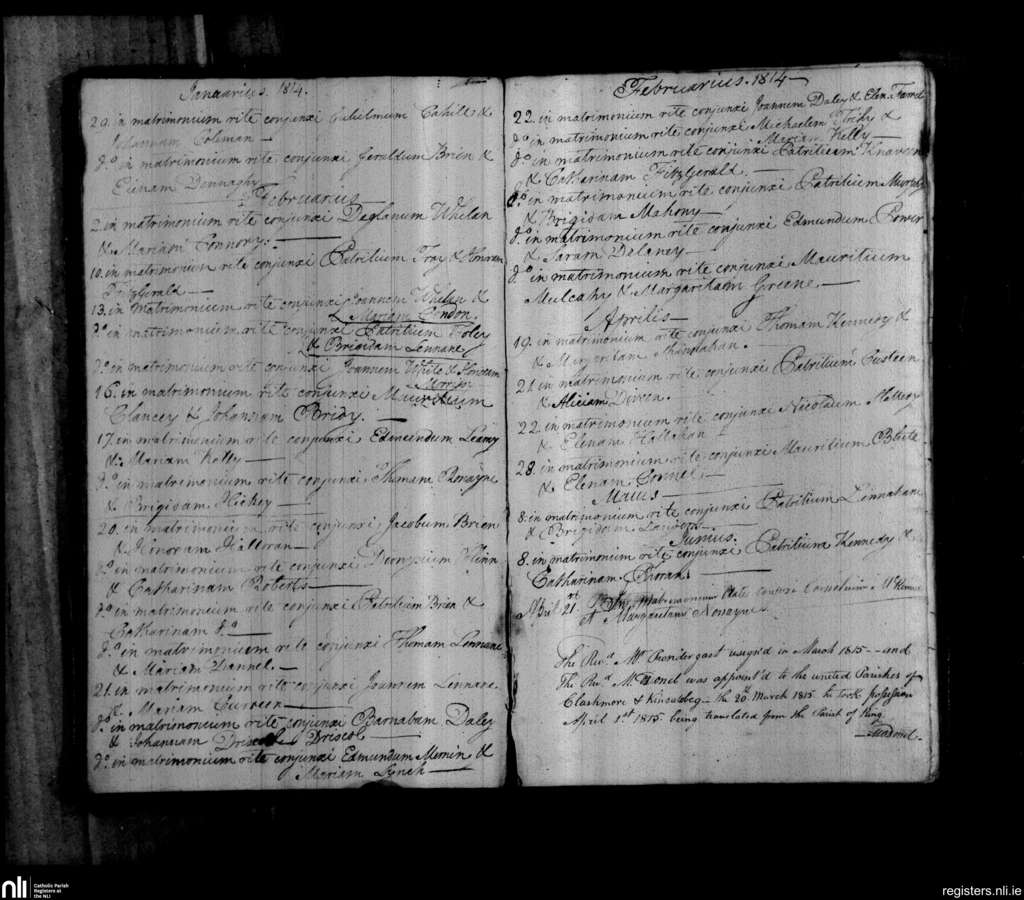 Januarius. 1814.
29. in matrimonium rite conjunxi Gulielmum Cahill &
Johannam Coleman —
do. in matrimonium rite conjunxi Geraldum Brien &
Donnaghy —
Februarius
2. in matrimonium rite conjunxi Deglanum Whelan
& Mariam Connory. —
10. in matrimonium rite conjunxi Patritium Troy & Honoram
FitzGerald —
13. in matrimonium rite conjunxi Joannem Whelan &
Mariam Condon.
do. in matrimonium rite conjunxi Patritium Foley
& Brigidam Lennane
do. in matrimonium rite conjunxi Joannem White & Honoram
16. in matrimonium rite conjunxi Mauritium
Clancey & Johannam Bridy. —
17. in matrimonium rite conjunxi Edmundum Leahy
& Mariam Kelly —
do. in matrimonium rite conjunxi Thomam Ronayne
& Brigidam Hickey —
20. in matrimonium rite conjunxi Jacobum Brien
& Honoram Halloran —
do. in matrimonium rite conjunxi Dionysium Flinn
& Catharinam Roberts —
do. in matrimonium rite conjunxi Patritium Brien &
Catharinam do. —
do. in matrimonium rite conjunxi Thomam Lennane
& Mariam —
21. in matrimonium rite conjunxi Joannem Linnane
& Mariam Curreen —
do. in matrimonium rite conjunxi Barnabam Daley
& Johannam Driscol —
do. in matrimonium rite conjunxi Edmundum &
Mariam Lynch —
Februarius. 1814 —
22. in matrimonium rite conjunxi Joannem Daley & Elen. Farrel
do. in matrimonium rite conjunxi Michaelem &
Mariam Kelly —
do. in matrimonium rite conjunxi Patritium
& Catharinam FitzGerald. —
do. in matrimonium rite conjunxi Patritium
& Brigidam Mahony —
do. in matrimonium rite conjunxi Edmundum Power
& Saram Delaney —
do. in matrimonium rite conjunxi Mauritium
Mulcahy & Margaritam Greene —
Aprilis —
19. in matrimonium rite conjunxi Thomam Kennedy &
& Margaritam
21. in matrimonium rite conjunxi Patritium
& Aliciam
22. in matrimonium rite conjunxi Nicolaum
& Elenam Hallahan
28. in matrimonium rite conjunxi Mauritium
& Elenam Connel. —
Maius —
8. in matrimonium rite conjunxi Patritium Linnahane
& Brigidam
Junius.
8. in matrimonium rite conjunxi Patritium Kennedy &
Catharinam —
April 21st in Matrimonium
et Margaritam Ronayne
The Revd. Mr. Prendergast resign'd in March 1815 — and
The Revd. Mr. was appoint'd to the united Parishes of
Clashmore & Kinsalebeg — the 20th March 1815 he took possession
April 1st 1815 being translated from the Parish of Ring
nli
Catholic Parish
Registers at
the NLI
registers.nli.ie